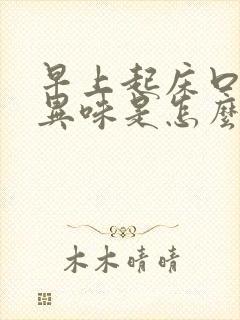 早上起床口
異味是怎麼
木木晴晴